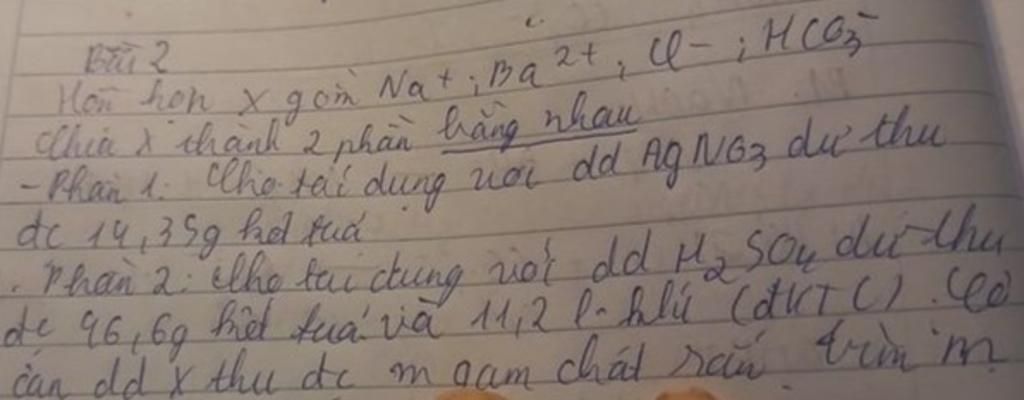 Bài 2
Hỗn hợp X gồm Na+; Ba2+; Cl-; HCO3-
Chia X thành 2 phần bằng nhau
- Phần 1: Cho tác dụng với dd AgNO3 dư thu
đc 14,35g kết tuả
. Phần 2: Cho tác dụng với dd H2SO4 dư thu
đc 46,6g kết tuả và 11,2 l khí (đktc). Cô
cạn dd X thu đc m gam chất rắn. tìm m